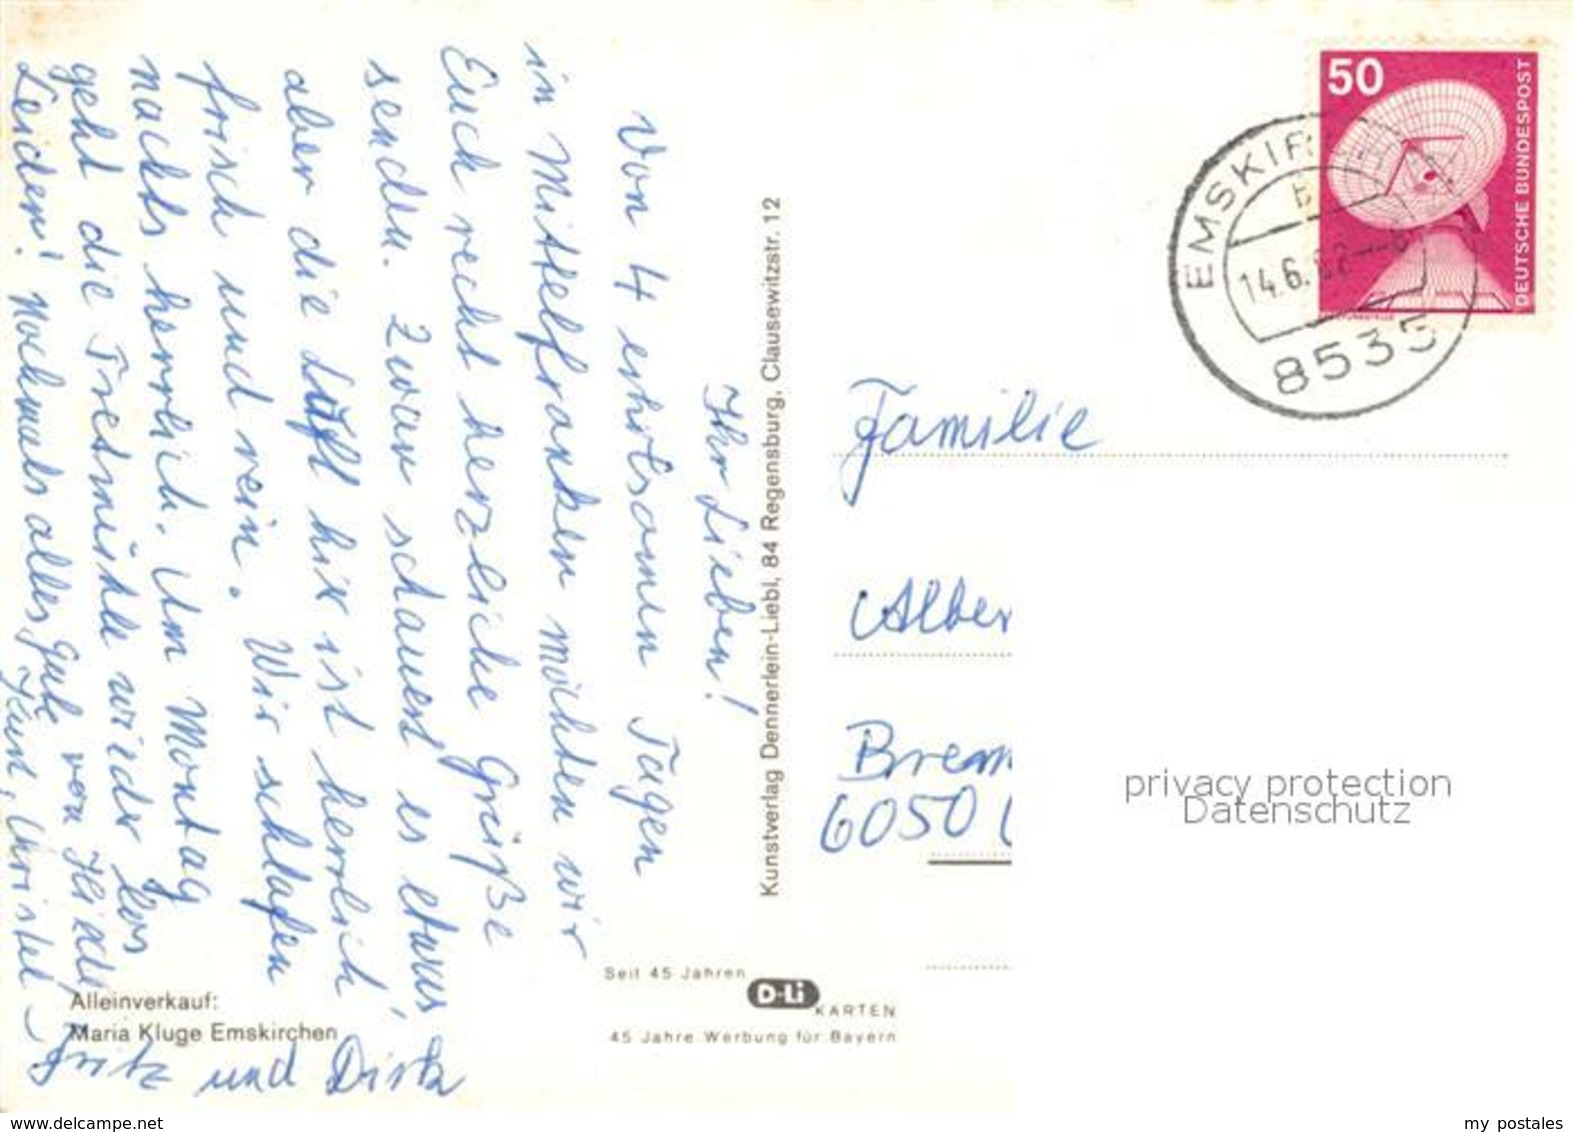 Ihr Lieben!
Von 4 erholsamen Tagen
in Mittelfranken möchten wir
Euch recht herzliche Grüße
senden. Zwar schauert es etwas,
aber die Luft hir ist herrlich
frisch und rein. Wir schlafen
nachts herrlich. Am Montag
geht die Tretmühle wieder los
Leider! Nochmals alles Gute von
Fritz und
Alleinverkauf:
Maria Kluge Emskirchen
Seit 45 Jahren
D-Li
KARTEN
45 Jahre Werbung für Bayern
Kunstverlag Dennerlein-Liebl, 84 Regensburg, Clausewitzstr. 12
50
DEUTSCHE BUNDESPOST
EMSKIRCHEN
14.6.82
8535
Familie
Alber
Brem
6050
privacy protection
Datenschutz
www.delcampe.net
my postales